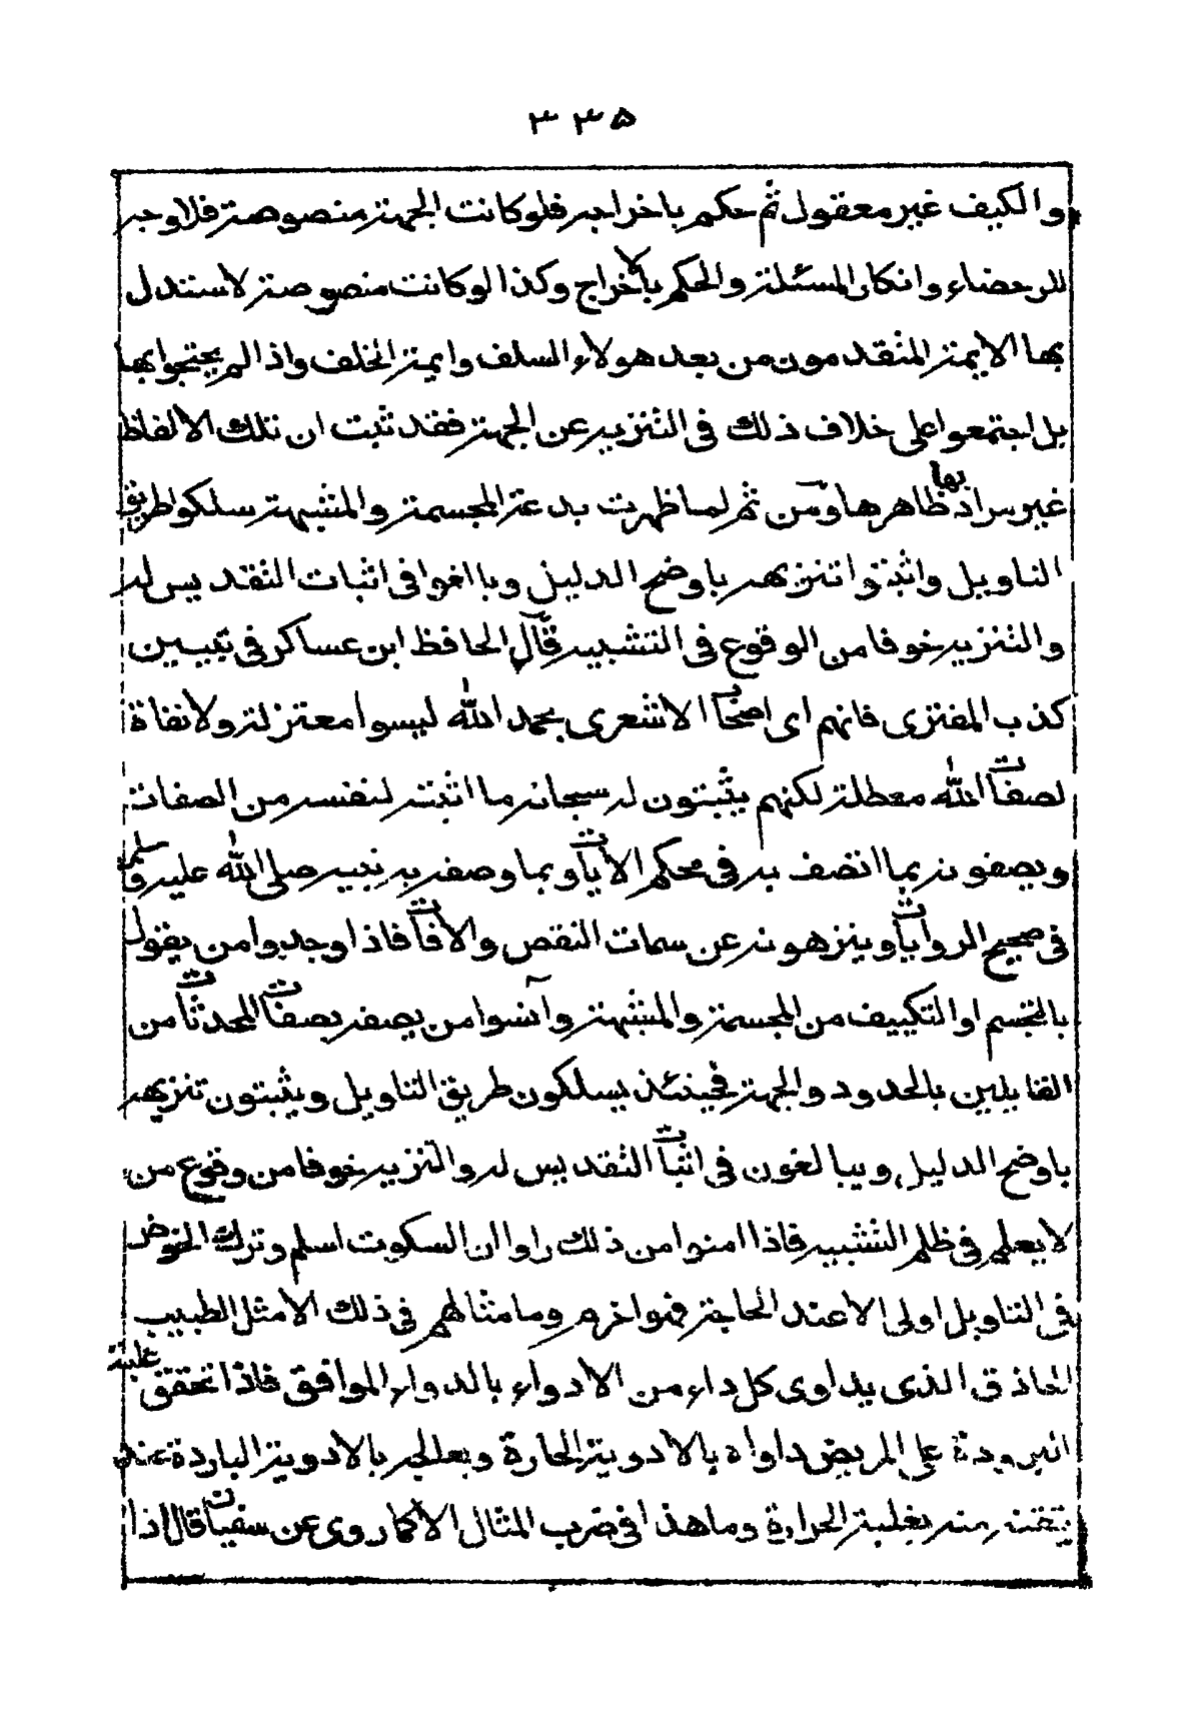 ٣٣٥
والكيف غير معقول ثم حكم باخراجه فلو كانت الجهة منصوصة فلا وجه
للرحضاء وانكار المسئلة والحكم بالاخراج وكذا لو كانت منصوصة لاستدل
بها الايمة المتقدمون من بعد هولاء السلف وايمة الخلف واذا لم يحتجوا بها
بل اجتمعوا على خلاف ذلك فى التنزيه عن الجهة فقد ثبت ان تلك الالفاظ
غير مراد بها ظاهرها ومن ثم لما ظهرت بدعة المجسمة والمشبهة سلكوا طريق
التاويل واثبتوا تنزيهه باوضح الدليل وبالغوا فى اثبات التقديس له
والتنزيه خوفا من الوقوع فى التشبيه قال الحافظ ابن عساكر فى تبيين
كذب المفترى فانهم اى اصحاب الاشعرى بحمد الله ليسوا معتزلة ولا نفاة
لصفات الله معطلة لكنهم يثبتون له سبحانه ما اثبته لنفسه من الصفات
ويصفونه بما اتصف به فى محكم الايات وبما وصفه به نبيه صلى الله عليه وسلم
فى صحيح الروايات وينزهونه عن سمات النقص والافات فاذا وجدوا من يقول
بالتجسم او التكييف من المجسمة والمشبهة وآنسوا من يصفه بصفات المحدثات من
القايلين بالحدود والجهة فحينئذ يسلكون طريق التاويل ويثبتون تنزيهه
باوضح الدليل ويبالغون فى اثبات التقديس له والتنزيه خوفا من وقوع من
لا يعلم فى ظلم التشبيه فاذا امنوا من ذلك راوا ان السكوت اسلم وترك الخوض
فى التاويل اولى الا عند الحاجة فهو احزم وما مثالهم فى ذلك الا مثل الطبيب
الحاذق الذى يداوى كل داء من الادواء بالدواء الموافق فاذا تحقق غلبة
البرودة على المريض داواه بالادوية الحارة ويعالجه بالادوية الباردة عند
تيقنه منه بغلبة الحرارة وما هذا فى ضرب المثال الا كما روى عن سفيان قال اذا